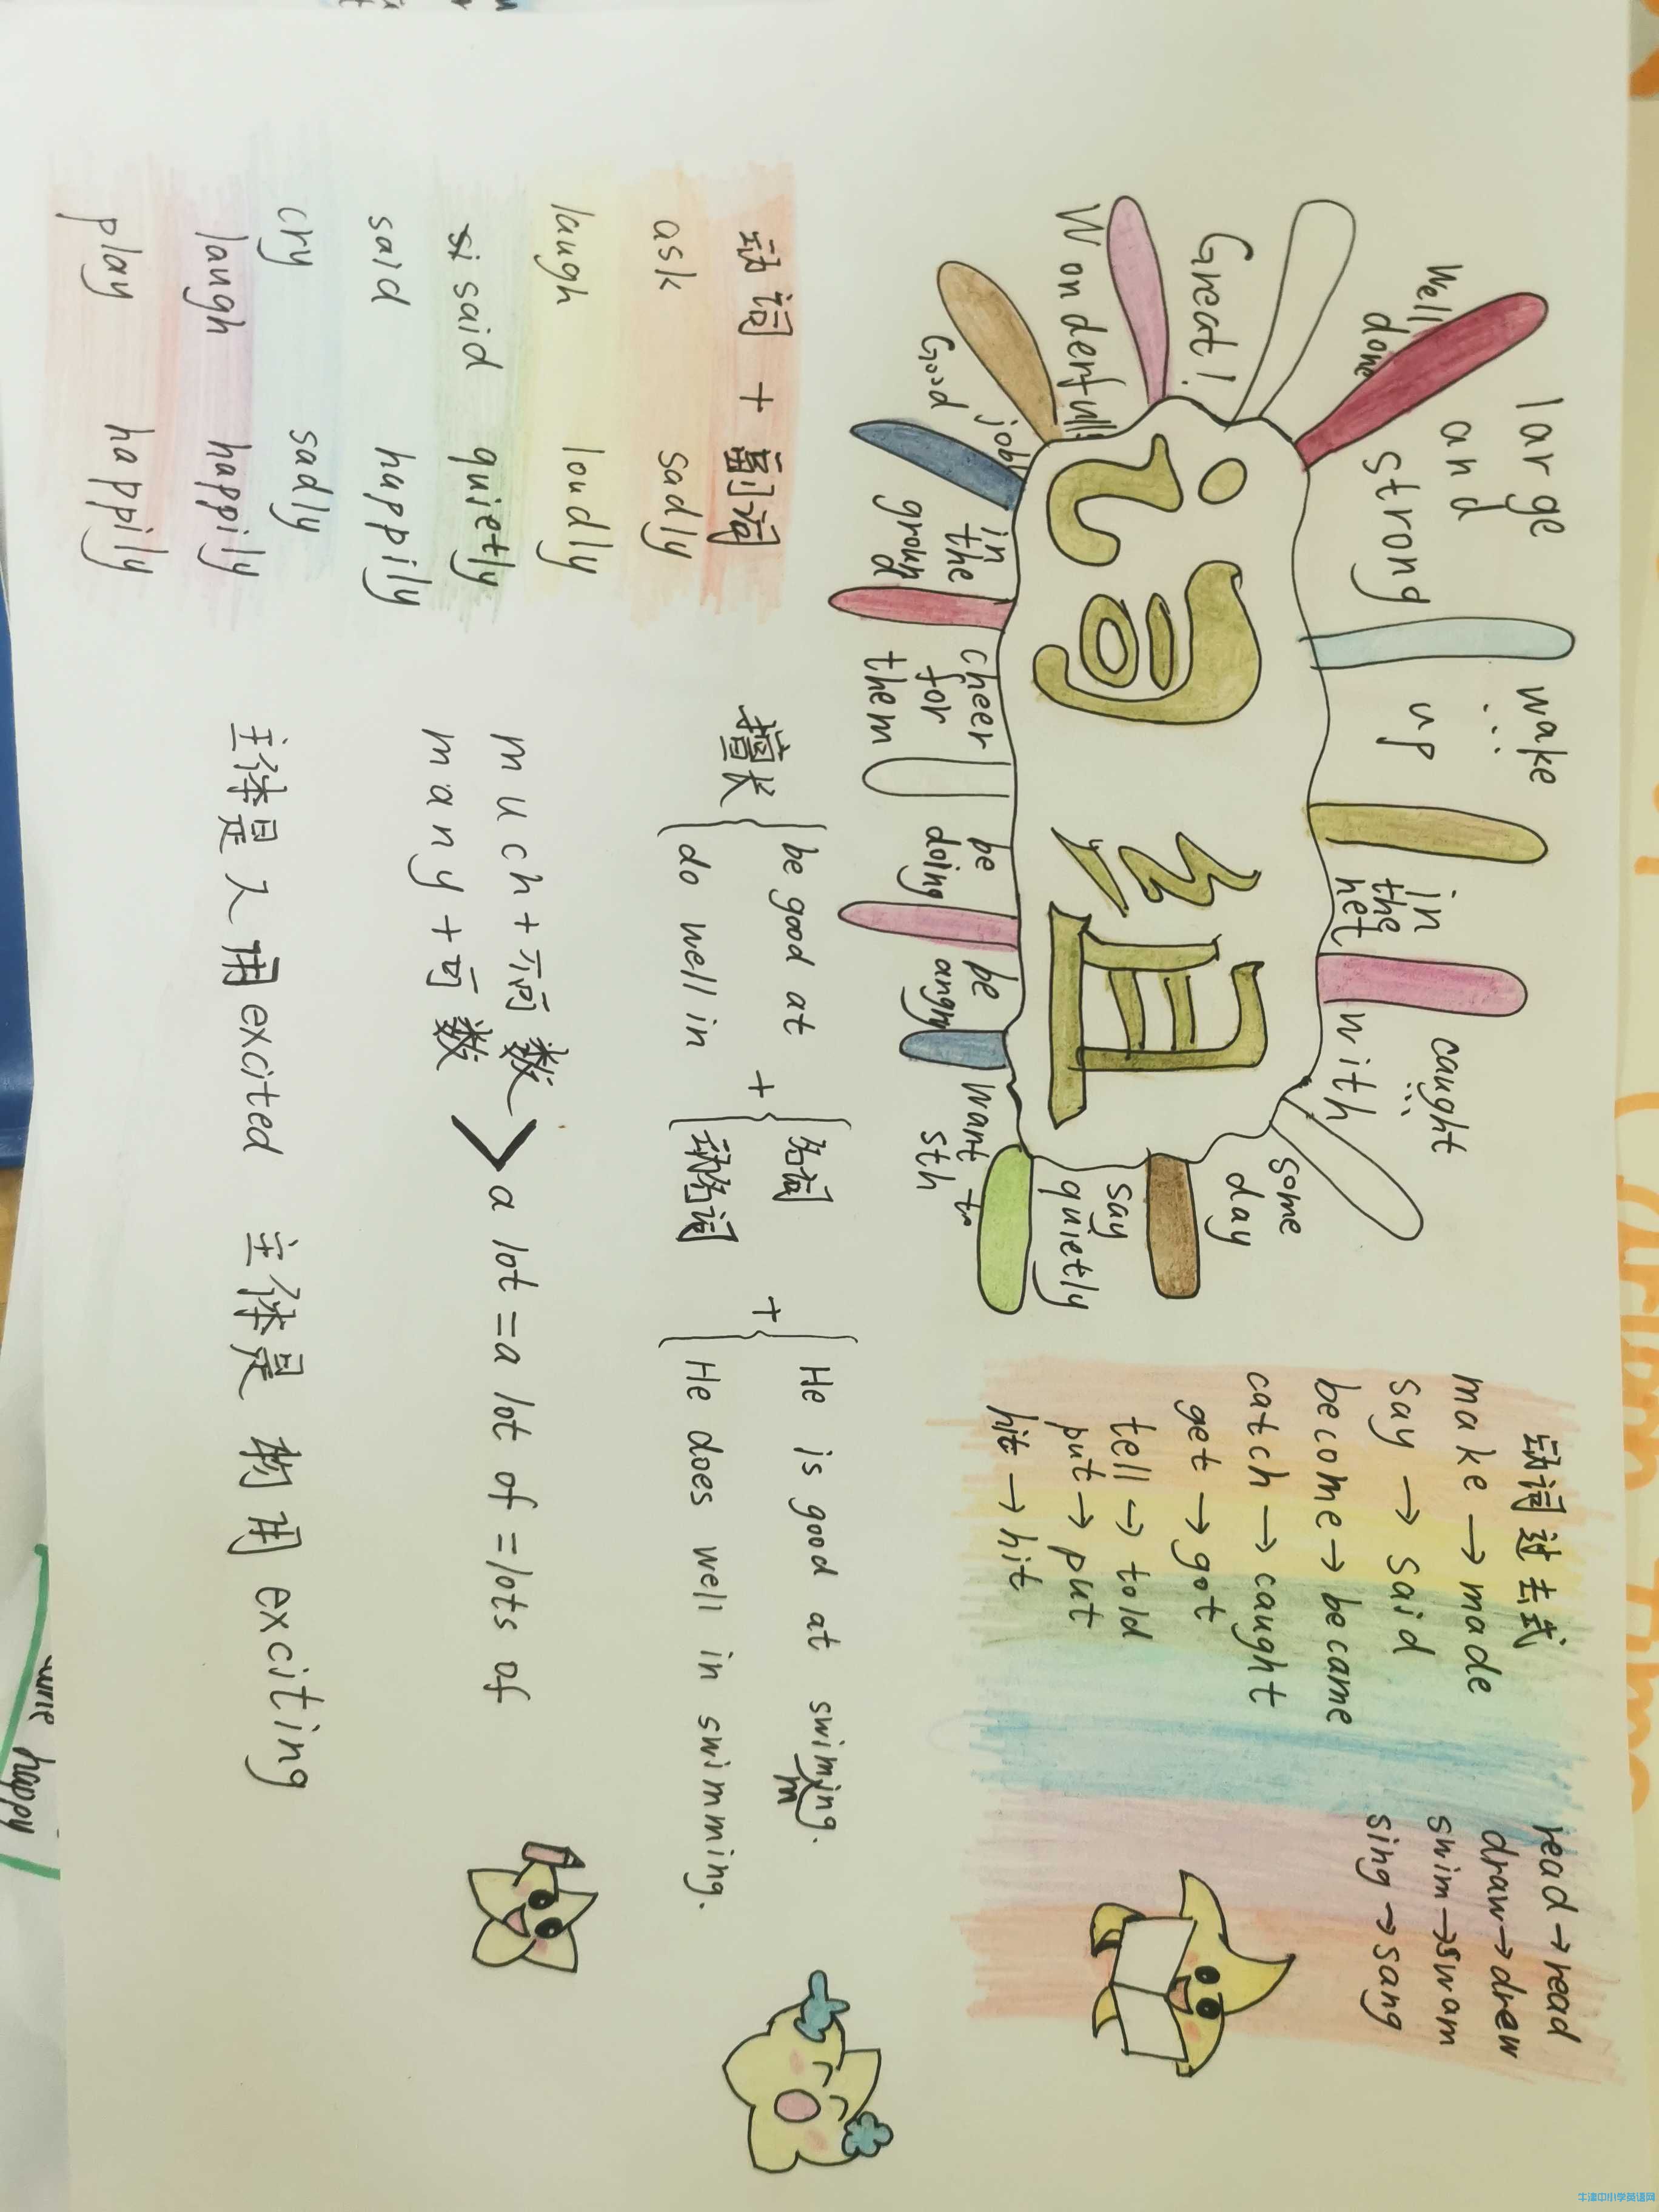 词组
large
and
strong
wake
...
up
in
the
net
caught
...
with
some
day
say
quietly
want to
sth
be
angry
be
doing
cheer
for
them
in
the
ground
Good job!
Wonderful!
Great!
Well
done
动词过去式
make → made
say → said
become → became
catch → caught
get → got
tell → told
put → put
hit → hit
read → read
draw → drew
swim → swam
sing → sang
动词 + 副词
ask sadly
laugh loudly
said quietly
said happily
cry sadly
laugh happily
play happily
擅长 { be good at
do well in
+ { 名词
动名词
+ { He is good at swiming.
m
He does well in swimming.
much + 不可数
many + 可数
> a lot = a lot of = lots of
主体是人用 excited 主体是 物用 exciting
happy
牛津中小学英语网